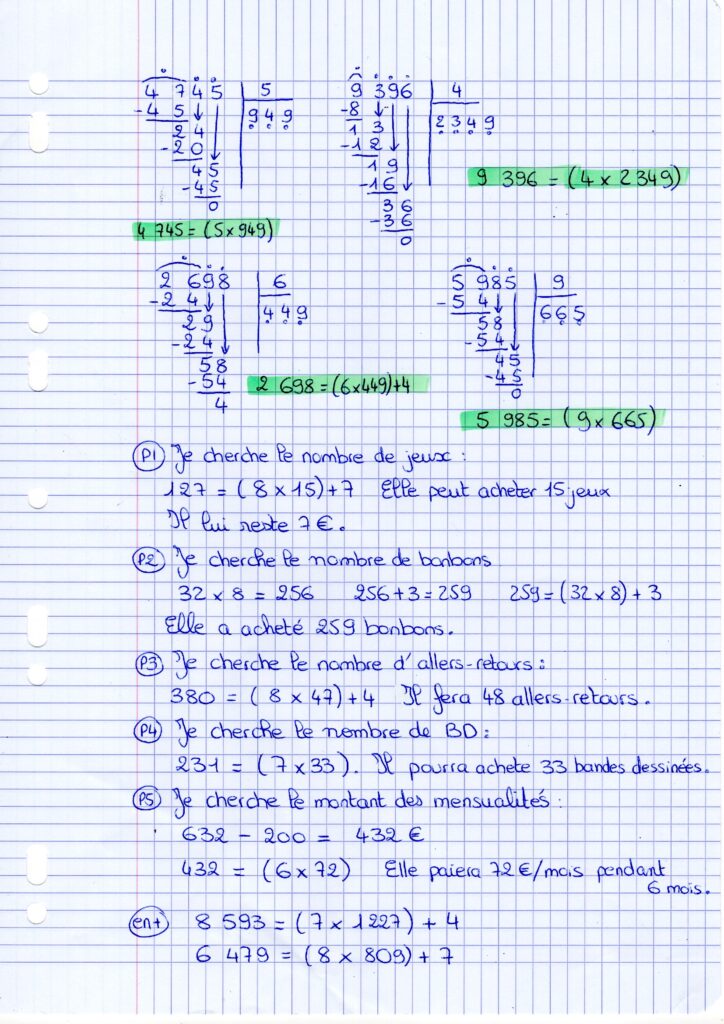 4 745 5
- 4 5 949
24
- 20
45
- 45
0
4 745 = (5 × 949)
9 396 4
- 8 2349
1 3
- 1 2
19
- 16
36
- 36
0
9 396 = (4 × 2 349)
2 698 6
- 2 4 449
29
- 24
58
- 54
4
2 698 = (6×449)+4
5 985 9
- 5 4 665
58
- 54
45
- 45
0
5 985 = (9 × 665)
P1 Je cherche le nombre de jeux :
127 = (8 × 15) + 7 Elle peut acheter 15 jeux
Il lui reste 7 €.
P2 Je cherche le nombre de bonbons
32 × 8 = 256 256 + 3 = 259 259 = (32 × 8) + 3
Elle a acheté 259 bonbons.
P3 Je cherche le nombre d'allers-retours :
380 = (8 × 47) + 4 Il fera 48 allers-retours.
P4 Je cherche le nombre de BD :
231 = (7 × 33). Il pourra achete 33 bandes dessinées.
P5 Je cherche le montant des mensualités :
632 - 200 = 432 €
432 = (6 × 72) Elle paiera 72 €/mois pendant
6 mois.
en+ 8 593 = (7 × 1227) + 4
6 479 = (8 × 809) + 7